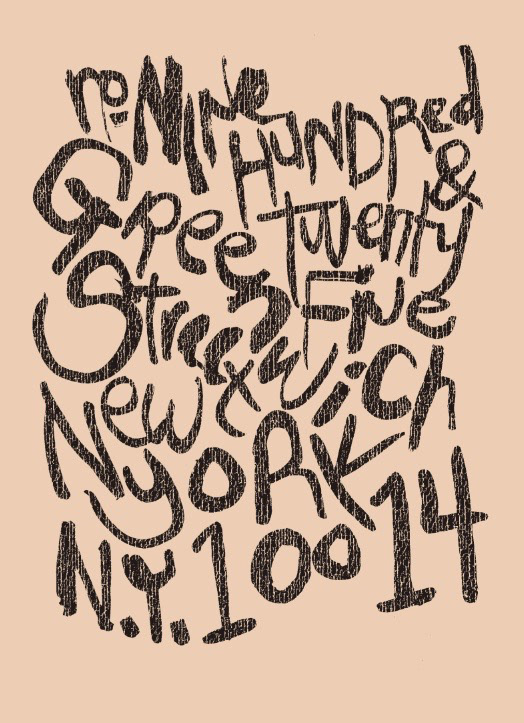 no NINe
HUNDRed &
twenty FiVe
Greenwich
Street
New
yORK
N.Y. 10014